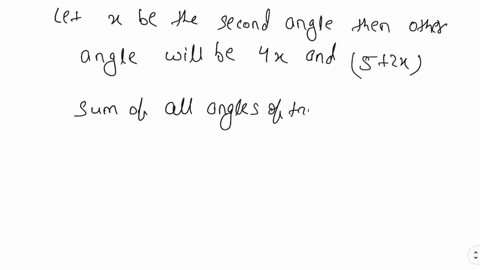 Let x be the second angle then other
angle will be 4x and (5+2x)
sum of all angles of tri